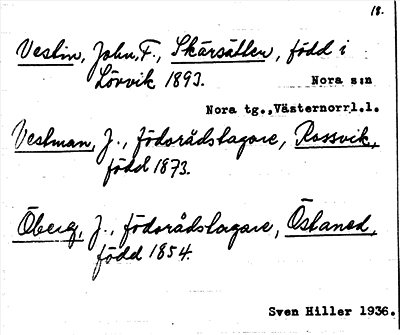 18.
Vestin, John, F., Skärsätter, född i
Lörvik 1893.
Nora s:n
Nora tg., Västernorrl.l.
Vestman, J., födorådstagare, Rossvik,
född 1873.
Öberg, J., födorådstagare, Östaned,
född 1854.
Sven Hiller 1936.